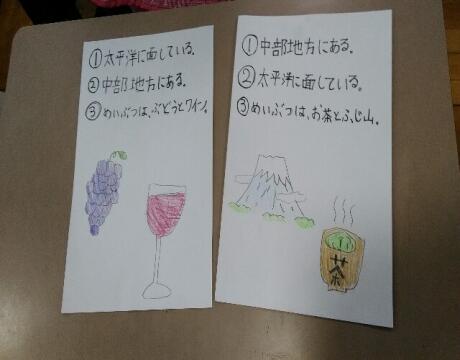 ①太平洋に面している。
②中部地方にある。
③めいぶつは、ぶどうとワイン。
①中部地方にある。
②太平洋に面している。
③めいぶつは、お茶とふじ山。
茶